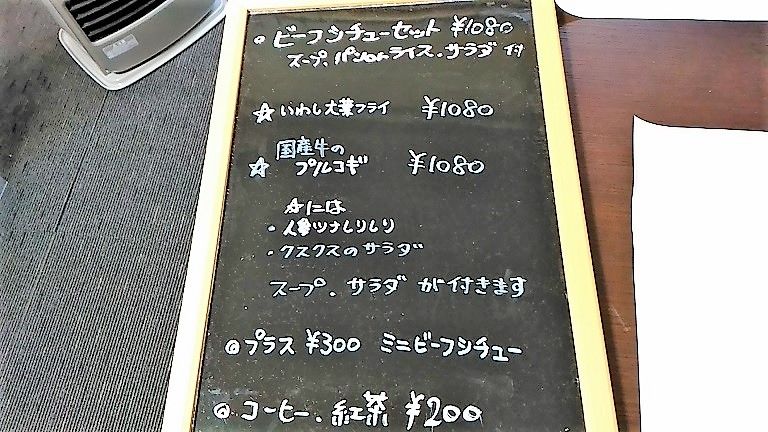 ◦ビーフシチューセット ¥1080
スープ、パンorライス、サラダ付
☆いわし大葉フライ ¥1080
国産牛の
☆プルコギ ¥1080
☆には
・人参ツナしりしり
・クスクスのサラダ
スープ、サラダが付きます
◎プラス¥300 ミニビーフシチュー
◎コーヒー、紅茶 ¥200